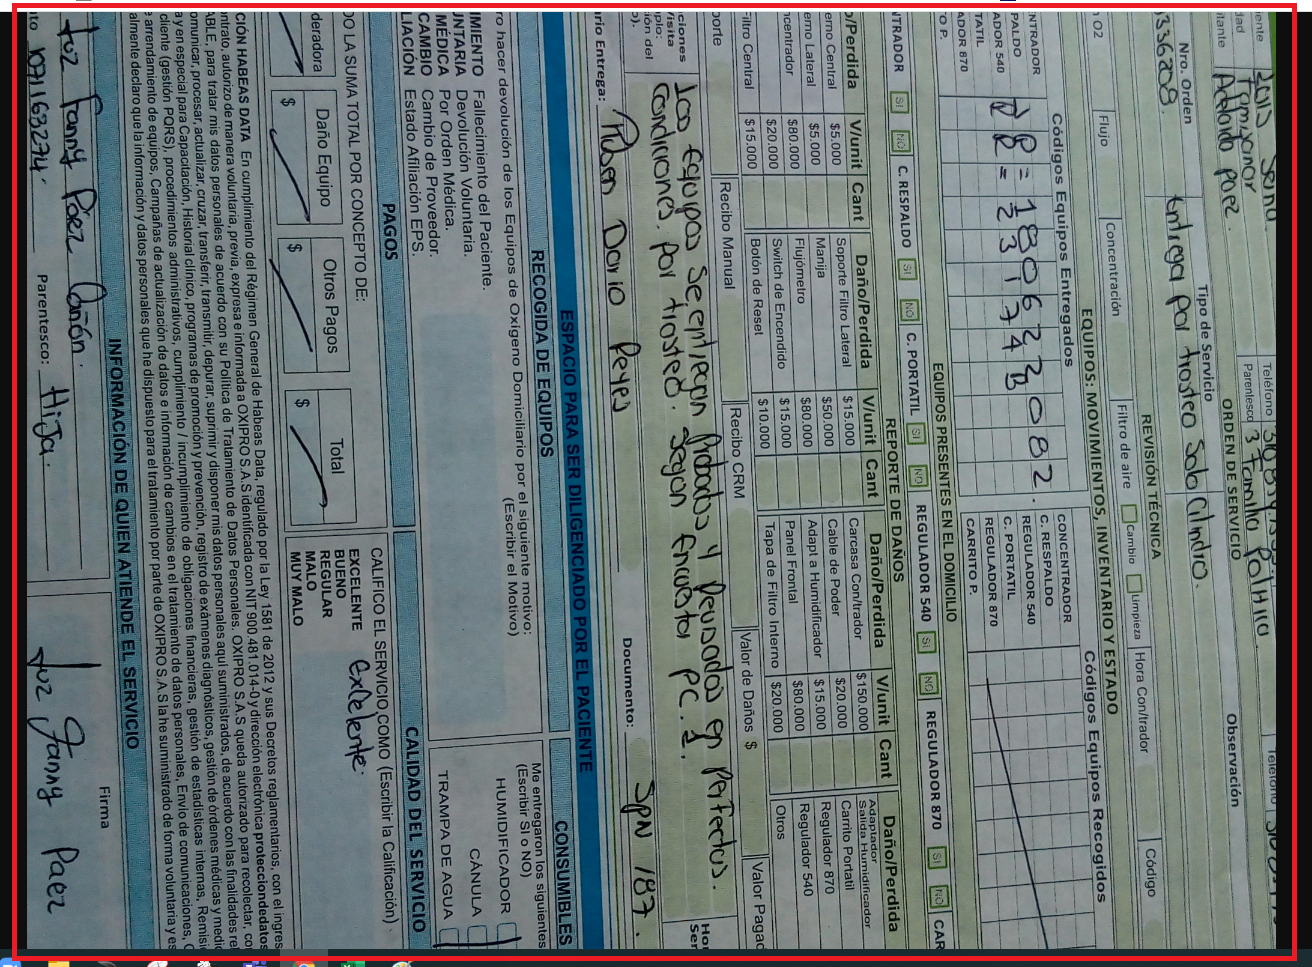 ente 2013 Serna Teléfono
dad Tomypanor. Parentesco 3 Familia Pol Hilla
tante Adelaida paez.
ORDEN DE SERVICIO
Nro. Orden Tipo de Servicio Observación
336208 Entrega por trosteo Solo Cilindro.
REVISIÓN TÉCNICA
n O2 Flujo Concentración Filtro de aire Cambio Limpieza Hora Con/trador Código
EQUIPOS: MOVIMIENTOS, INVENTARIO Y ESTADO
Códigos Equipos Entregados Códigos Equipos Recogidos
NTRADOR CONCENTRADOR
PALDO C. RESPALDO
ADOR 540 REGULADOR 540
TATIL C. PORTATIL
ADOR 870 REGULADOR 870
O P. CARRITO P.
EQUIPOS PRESENTES EN EL DOMICILIO
NTRADOR SI NO C. RESPALDO SI NO C. PORTATIL SI NO REGULADOR 540 SI NO REGULADOR 870 SI NO CAR
REPORTE DE DAÑOS
o/Perdida V/unit Cant Daño/Perdida V/unit Cant Daño/Perdida V/unit Cant Daño/Perdida
erno Central $5.000 Soporte Filtro Lateral $15.000 Carcasa Con/trador $150.000 Adaptador Salida Humidificador
erno Lateral $5.000 Manija $50.000 Cable de Poder $20.000 Carrito Portatil
ncentrador $80.000 Flujómetro $80.000 Adapt a Humidificador $15.000 Regulador 870
$20.000 Switch de Encendido $15.000 Panel Frontal $80.000 Regulador 540
iltro Central $15.000 Botón de Reset $10.000 Tapa de Filtro Interno $20.000 Otros
porte Recibo Manual Recibo CRM Valor de Daños $ Valor Pagad
ciones Los equipos Se entregan Probados y Revisados en Perfectas. Hor
condiciones. por trosteo. Segun Encuesta PC. 1. Ser
rio Entrega: Ruben Dario Reyes Documento: SPN 187.
ESPACIO PARA SER DILIGENCIADO POR EL PACIENTE
RECOGIDA DE EQUIPOS CONSUMIBLES
ro hacer devolución de los Equipos de Oxígeno Domiciliario por el siguiente motivo: Me entregaron los siguientes
(Escribir el Motivo) (Escribir SI o NO)
IMIENTO Fallecimiento del Paciente. HUMIDIFICADOR
UNTARIA Devolución Voluntaria.
MÉDICA Por Orden Médica. CÁNULA
CAMBIO Cambio de Proveedor.
LIACIÓN Estado Afiliación EPS. TRAMPA DE AGUA
PAGOS CALIDAD DEL SERVICIO
DO LA SUMA TOTAL POR CONCEPTO DE: CALIFICO EL SERVICIO COMO (Escribir la Calificación)
deradora Daño Equipo Otros Pagos Total EXCELENTE Exelente.
$ $ $ BUENO
REGULAR
MALO
MUY MALO
CIÓN HABEAS DATA En cumplimiento del Régimen General de Habeas Data, regulado por la Ley 1581 de 2012 y sus Decretos reglamentarios, con el ingres
ntrato, autorizo de manera voluntaria, previa, expresa e informada a OXIPRO S.A.S identificada con NIT 900.481.014-0 y dirección electrónica protecciondedatos
ABLE, para tratar mis datos personales de acuerdo con su Política de Tratamiento de Datos Personales. OXIPRO S.A.S queda autorizado para recolectar, co
omunicar, procesar, actualizar, cruzar, transferir, transmitir, depurar, suprimir y disponer mis datos personales aquí suministrados, de acuerdo con las finalidades rel
a y en especial para Capacitación, Historial clínico, programas de promoción y prevención, registro de exámenes diagnósticos, gestión de órdenes médicas y medic
cliente (gestión PQRS), procedimientos administrativos, cumplimiento / incumplimiento de obligaciones financieras, gestión de estadísticas internas, Remisi
e arrendamiento de equipos, Campañas de actualización de datos e información de cambios en el tratamiento de datos personales, Envío de comunicaciones,
almente declaro que la información y datos personales que he dispuesto para el tratamiento por parte de OXIPRO S.A.S la he suministrado de forma voluntaria y es
INFORMACIÓN DE QUIEN ATIENDE EL SERVICIO
Luz Fanny Páez Firma
Parentesco: Hija. Luz Fanny Paez